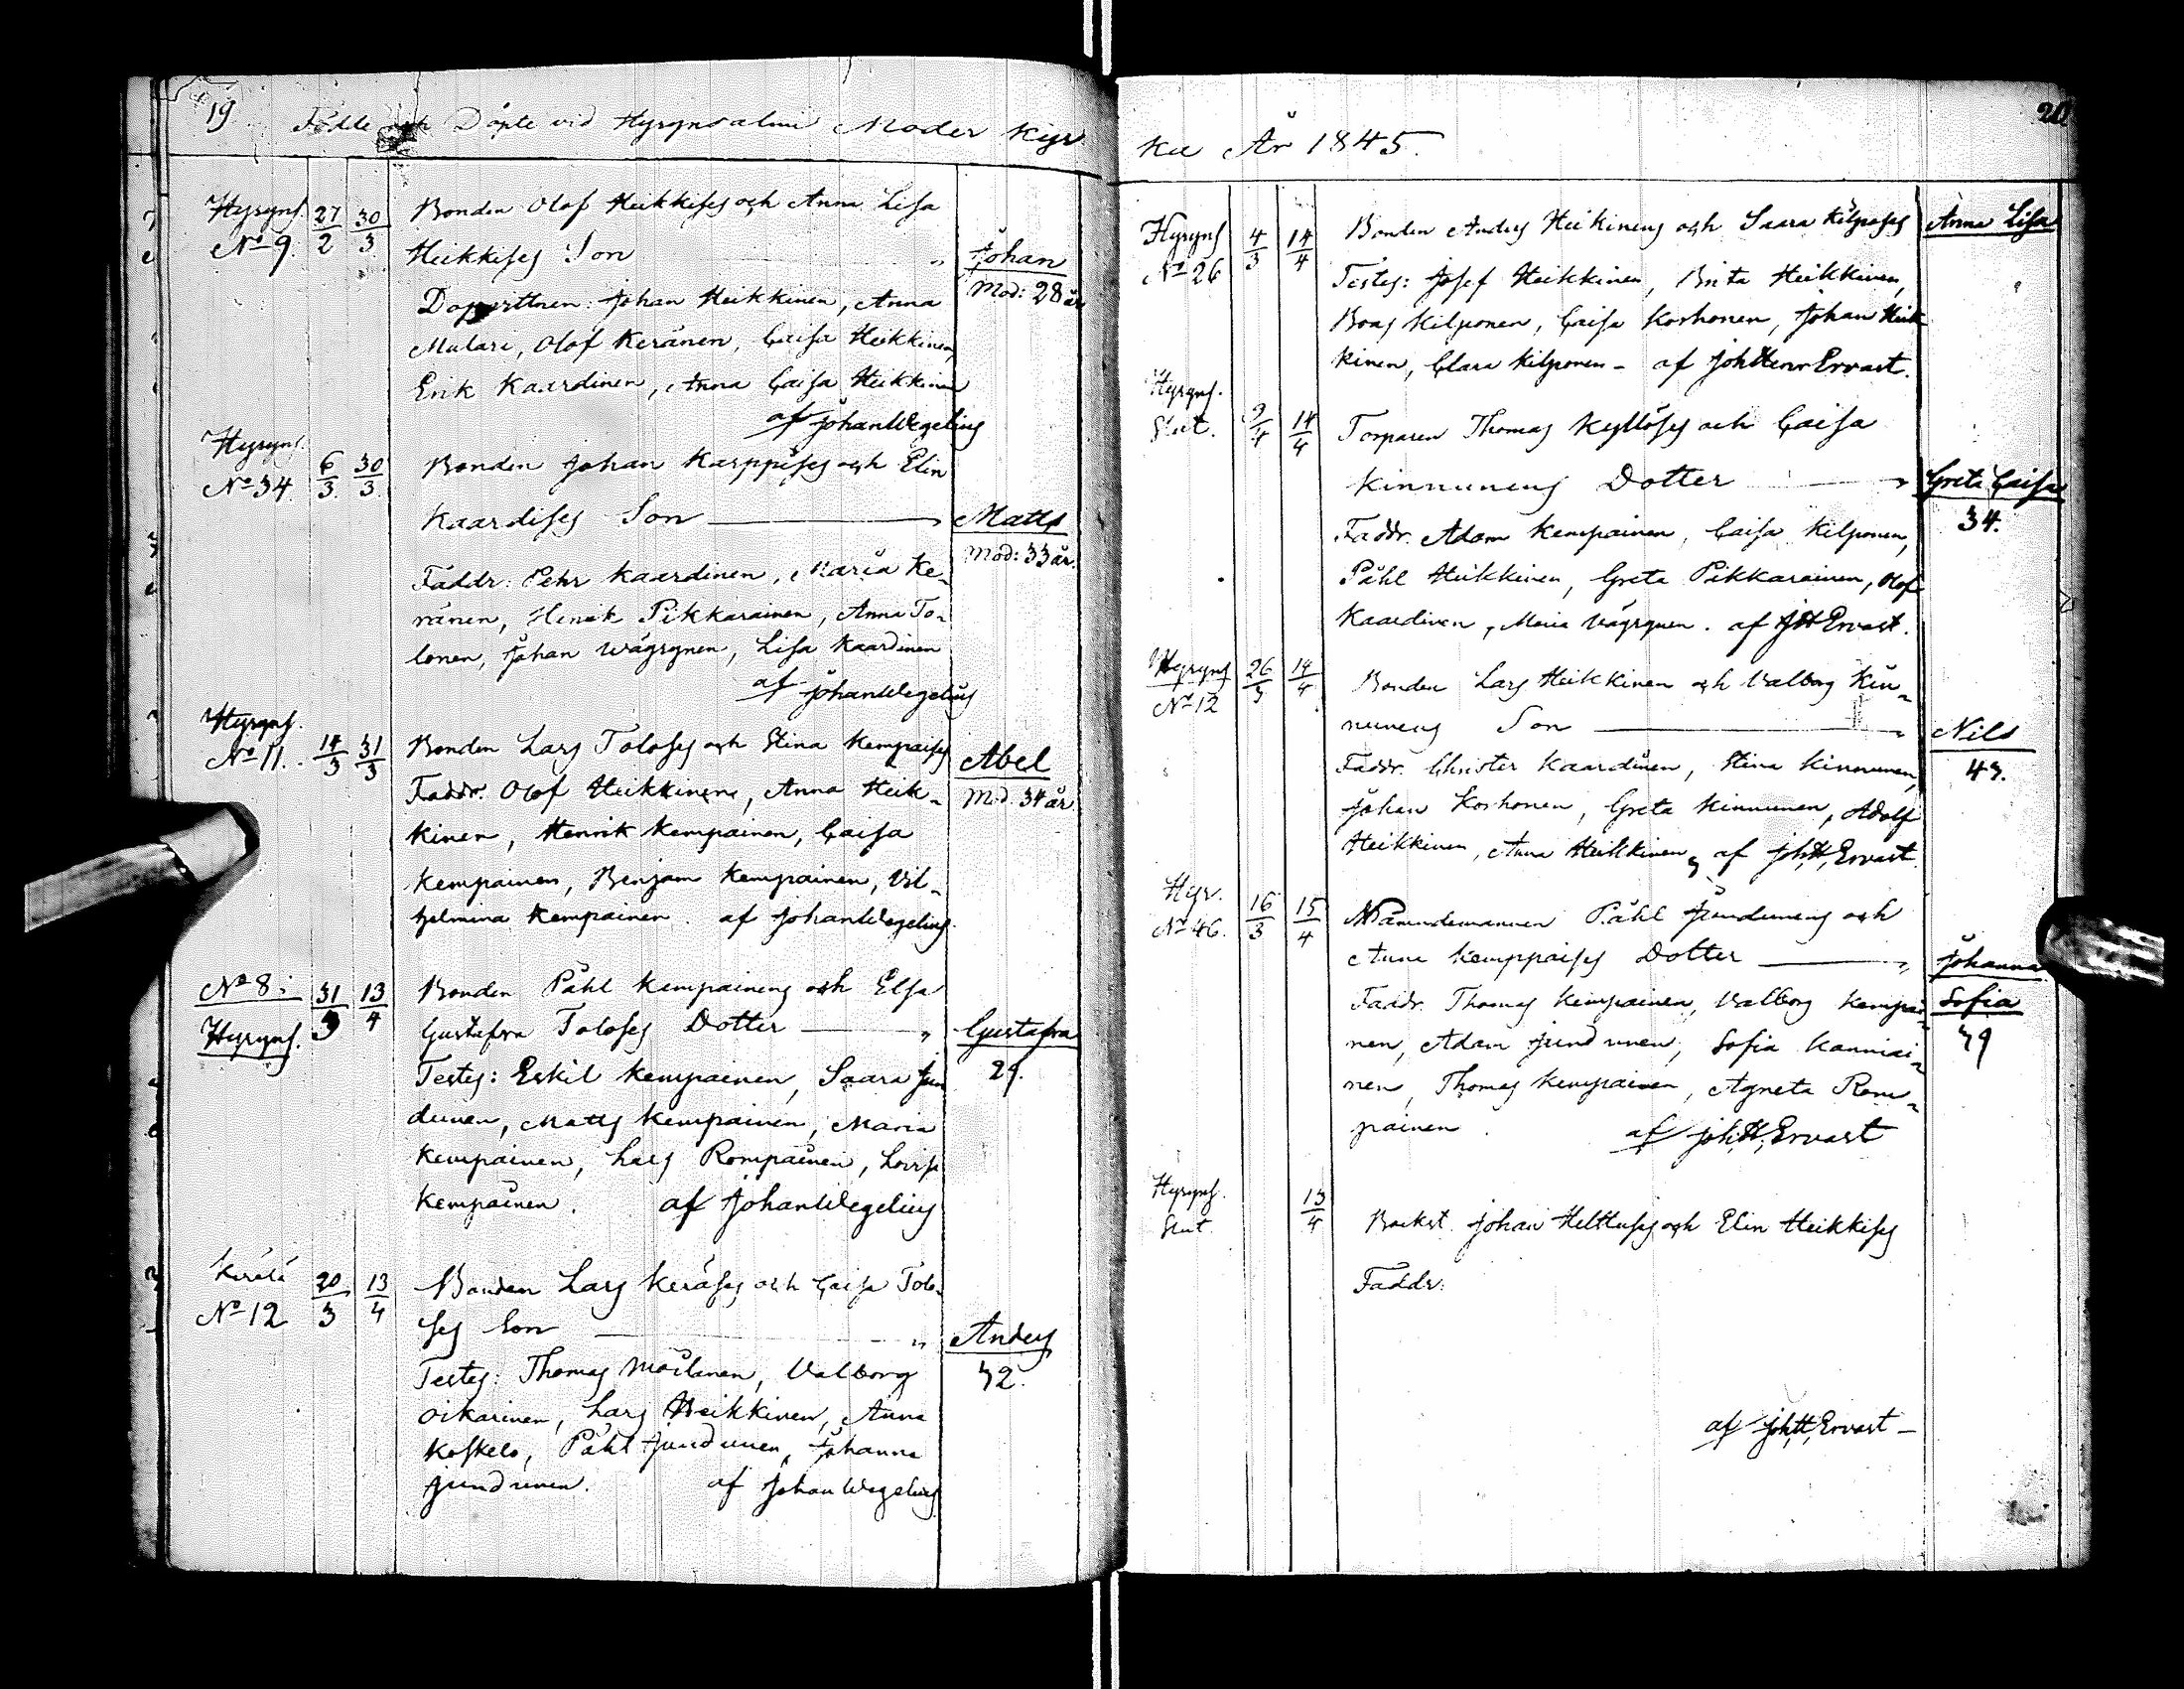 19 Födde och Döpte vid Hyrynsalmi Moder Kyr
Hyryns. 27/2 30/3 Bonden Olof Heikkises och Anna Lisa
No 9. Heikkises Son " Johan
Mod: 28 år
Dopvittnen: Johan Heikkinen, Anna
Mulari, Olof Keränen, Caisa Heikkinen,
Erik Kaardinen, Anna Caisa Heikkinen
af Johan Wegelius
Hyryns.
No 34 6/3 30/3 Bonden Johan Karppises och Elin
Kaardises Son " Matts
Mod: 33 år.
Faddr: Pehr Kaardinen, Maria Ke-
ränen, Henrik Pikkarainen, Anna To-
lonen, Johan Wäyrynen, Lisa Kaardinen
af Johan Wegelius
Hyryns.
No 11. 14/3 31/3 Bonden Lars Toloses och Stina Kempaises Abel
Faddr. Olof Heikkinen, Anna Heik- Mod. 34 år
kinen, Henrik Kempainen, Caisa
Kempainen, Benjam Kempainen, Vil-
helmina Kempainen. af Johan Wegelius.
No 8 31/3 13/4 Bonden Påhl Kempainens och Elsa
Hyryns. Gustafva Toloses Dotter " Gustafva
Testes: Eskil Kempainen, Saara Jun 29.
dunen, Matts Kempainen, Maria
Kempainen, Lars Rompainen, Lovisa
Kempainen. af Johan Wegelius
Kerälä 20/3 13/4 Bonden Lars Keräses och Caisa Tolo-
No 12 ses Son " Anders
Testes: Thomas Moilanen, Valborg 32.
Oikarinen, Lars Heikkinen, Anna
Koskelo, Påhl Jundunen, Johanna
Jundunen. af Johan Wegelius
20
ka År 1845.
Hyryns 4/3 14/4 Bonden Anders Heikinens och Saara Kilposes Anna Lisa
No 26 Testes: Josef Heikkinen, Brita Heikkinen,
Boas Kilponen, Caisa Korhonen, Johan Heik
kinen, Clara Kilponen - af Joh Henr Ervast.
Hyryns.
Slut. 9/4 14/4 Torparen Thomas Kyllöses och Caisa
Kinnunens Dotter " Greta Caisa
Faddr. Adam Kempainen, Caisa Kilponen, 34.
Påhl Heikkinen, Greta Pikkarainen, Olof
Kaardinen, Maria Wäyrynen. af J H Ervast.
Hyryns 26/3 14/4 Bonden Lars Heikkinen och Valborg Kin-
No 12 nunens Son " Nils
Faddr. Christer Kaardinen, Stina Kinnunen, 43.
Johan Korhonen, Greta Kinnunen, Adolf
Heikkinen, Anna Heikkinen, af Joh. H. Ervast.
Hyr. 16/3 15/4 Nämndemannen Påhl Jundunens och
No 46. Anna Kemppaises Dotter " Johanna
Faddr. Thomas Kempainen, Valborg Kempai- Sofia
nen, Adam Jundunen, Sofia Kanniai- 39
nen, Thomas Kempainen, Agneta Rom-
painen. af Joh. H. Ervast
Hyryns.
Slut. 13/4 Backst. Johan Helttuses och Elin Heikkises
Faddr:
af Joh. H. Ervast -